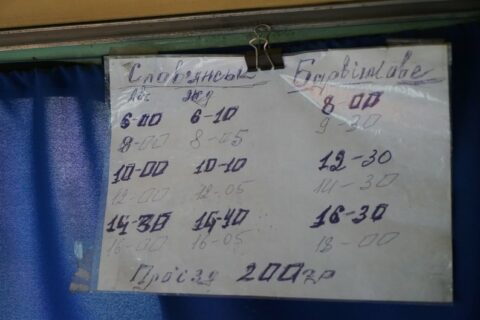 Слов'янськ Барвінкове
Авс ЖД
6-00 6-10 8-00
8-00 8-05 9-30
10-00 10-10 12-30
12-00 12-05 14-30
14-30 14-40 16-30
16-00 16-05 18-00
Проїзд 200гр